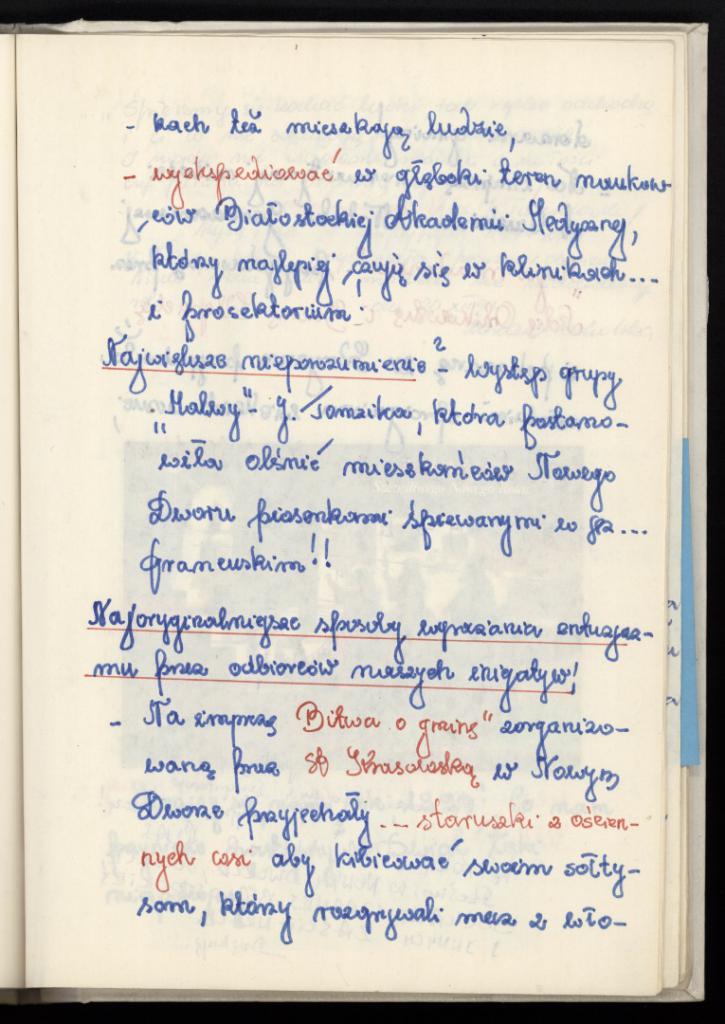 - kach też mieszkają ludzie,
- wyekspediować w głęboki teren naukow-
ców Białostockiej Akademii Medycznej,
którzy najlepiej czują się w klinikach...
i prosektorium!
Największe nieporozumienie? - występ grupy
"Malwy" - J. Tomzika, która postano-
wiła olśnić mieszkańców Nowego
Dworu piosenkami śpiewanymi w jęz...
francuskim!!
Najoryginalniejsze sposoby wyrażania entuzjaz-
mu przez odbiorców naszych inicjatyw!
- Na imprezę "Bitwa o gminę" zorganizo-
waną przez
w Nowym
Dworze przyjechały ... staruszki z ościen-
nych wsi aby kibicować swoim sołty-
som, którzy rozgrywali mecz z wło-